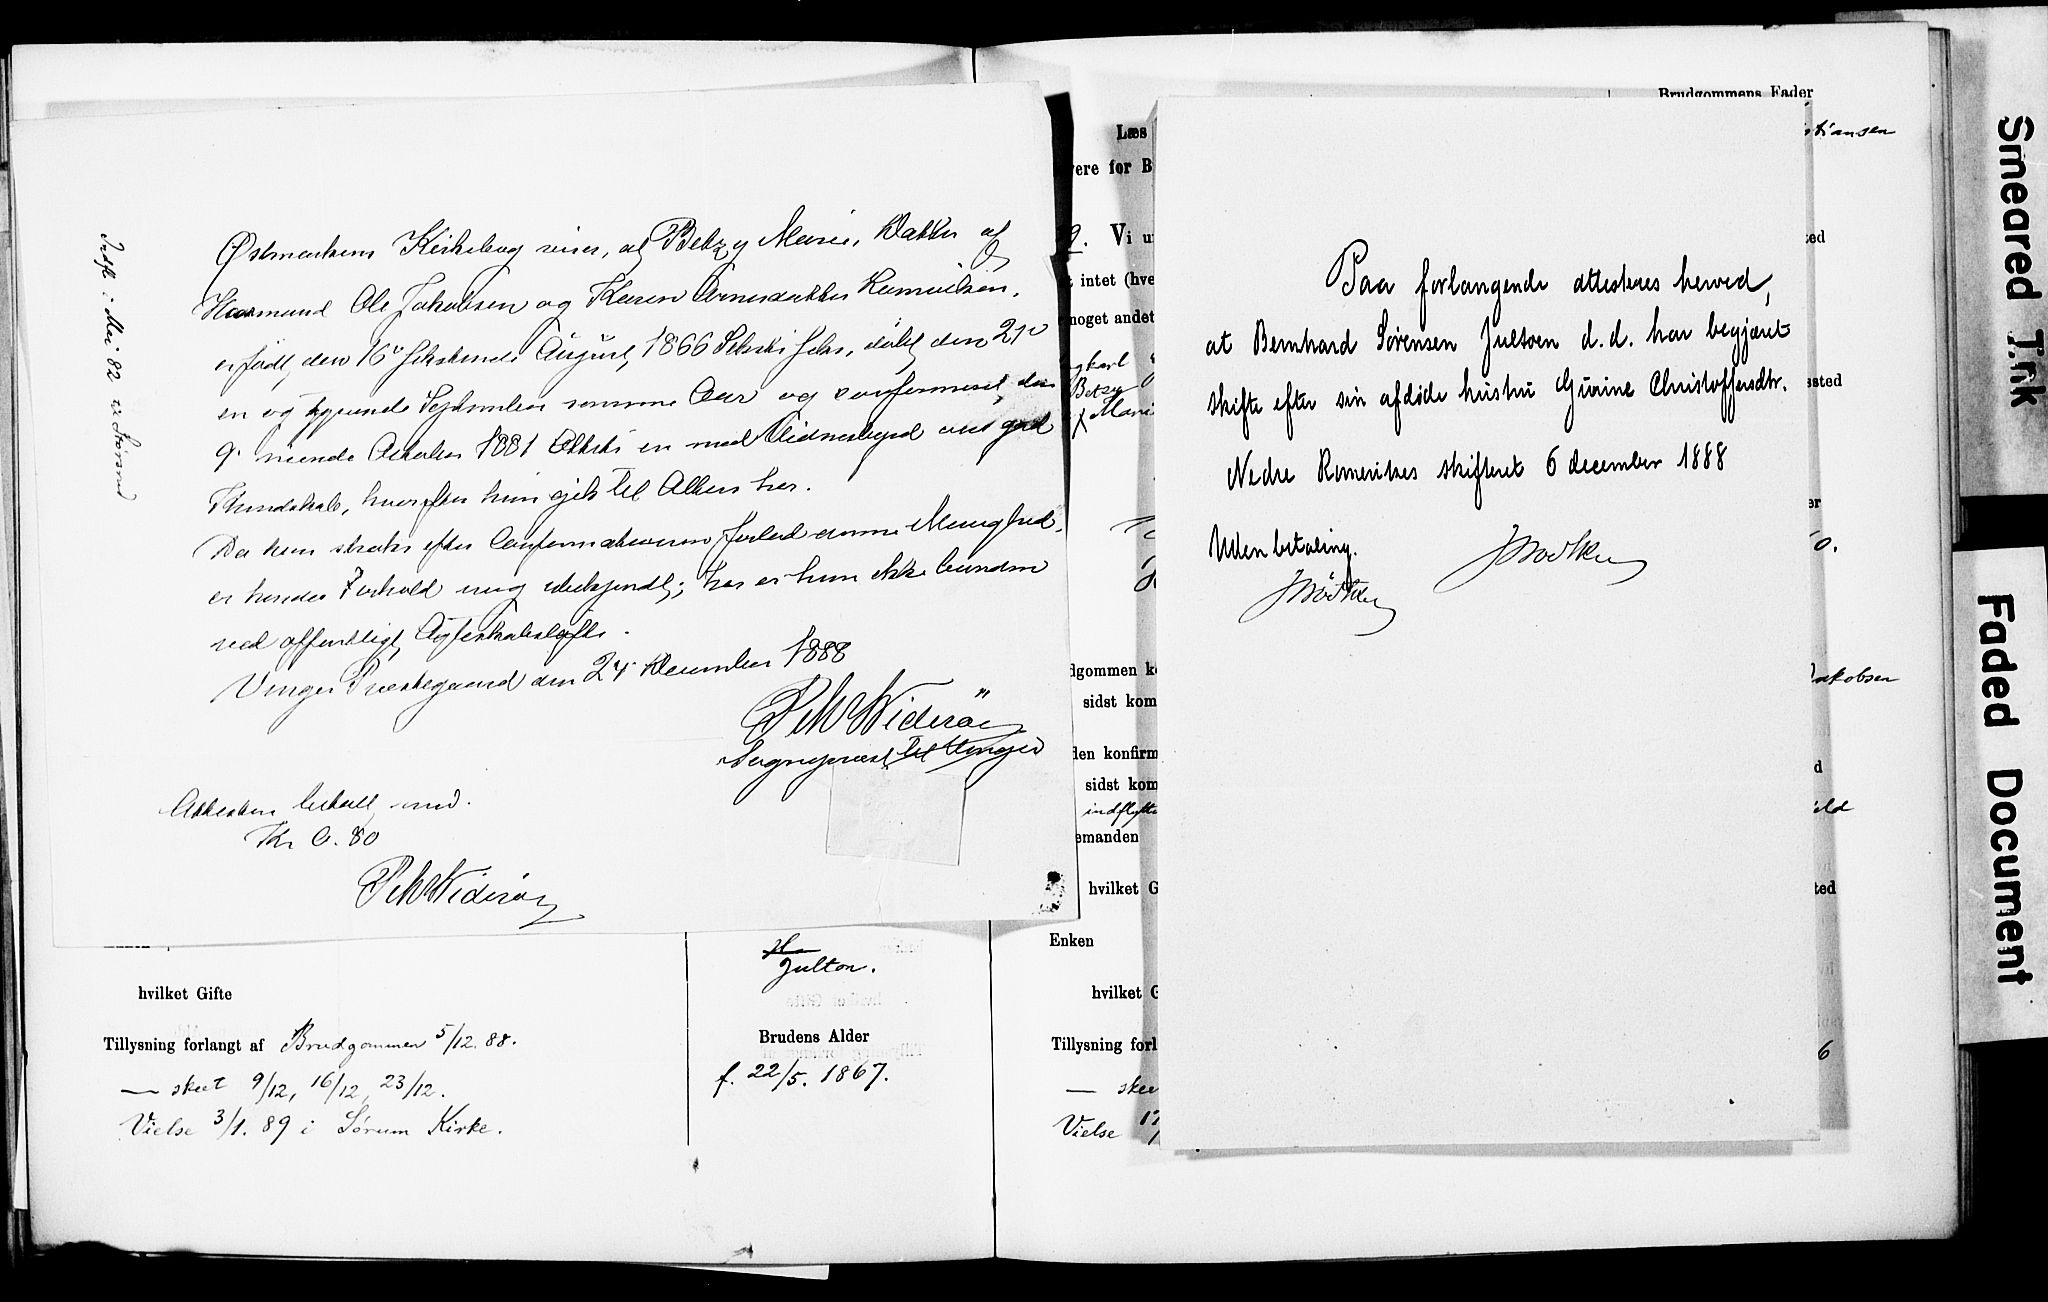 Østmarkens Kirkebog viser, at Betzy Marie, Datter af
Huusmand Ole Jakobsen og Karen Arnesdatter
er født den 16de sekstende August 1866 Seksti seks, døbt den 21de
en og tyvende September samme Aar og confirmeret den
9. niende Oktober 1881 Otteti en med Vidnesbyrd meget god
Kundskab, hvorefter hun gik til Alters her.
Da hun straks efter Confirmationen forlod denne Menighed,
er hendes Forhold mig ubekjendt; her er hun ikke bunden
ved offentligt Ægteskabsløfte.
Vinger Præstegaard den 24. December 1888
P Widerøe
Sogneprest til Vinger
Attesten betalt med.
Kr 0.80
P Widerøe
Indfl. i Mai 82
Julton.
hvilket Gifte
Tillysning forlangt af Brudgommen 5/12. 88.
— skeet 9/12, 16/12, 23/12.
Vielse 3/1. 89 i Sørum Kirke.
Brudens Alder
f. 22/5. 1867.
Brudgommens Fader
stiansen
Læs
vere for B
9. Vi u
t intet (hve
noget andet
gkarl
Betzy
Mari
dgommen k
sidst kom
den konfirm
sidst kom
indflytte
emanden
hvilket G
Enken
hvilket G
Tillysning forl
— skee
Vielse 17
ted
ssted
er
0.
Jakobsen
d
ild
ted
6
Paa forlangende attesteres herved,
at Bernhard Sørensen Jultoen d.d. har begjæret
skifte efter sin afdøde hustru Gurine Christoffersdtr.
Nedre Romerikes skifteret 6 december 1888
Uden betaling.
Smeared Ink
Faded Document